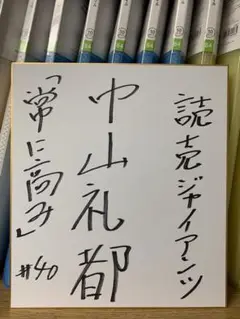 読売ジャイアンツ
中山礼都
「常に高み」
#40